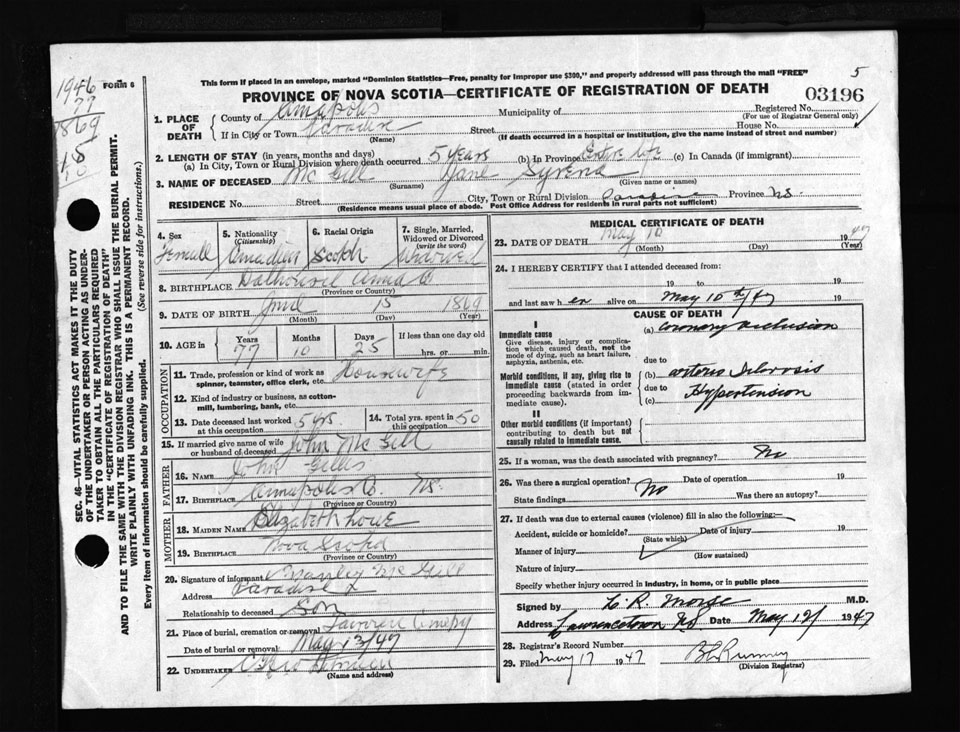 This form if placed in an envelope, marked "Dominion Statistics—Free, penalty for improper use $300," and properly addressed will pass through the mail "FREE"
5
FORM 6
1946
77
1869
PROVINCE OF NOVA SCOTIA—CERTIFICATE OF REGISTRATION OF DEATH
03196
1. PLACE OF DEATH
County of Annapolis Municipality of Registered No.
(For use of Registrar General only)
If in City or Town Paradise Street House No.
(Name) (If death occurred in a hospital or institution, give the name instead of street and number)
2. LENGTH OF STAY (in years, months and days)
(a) In City, Town or Rural Division where death occurred 5 years (b) In Province Entire life (c) In Canada (if immigrant)
3. NAME OF DECEASED Mc Gill Jane Syrena
(Surname) (Given name or names)
RESIDENCE No. Street City, Town or Rural Division Paradise Province NS.
(Residence means usual place of abode. Post Office Address for residents in rural parts not sufficient)
4. Sex
Female
5. Nationality
(Citizenship)
Canadian
6. Racial Origin
Scotch
7. Single, Married, Widowed or Divorced
(write the word)
Widowed
8. BIRTHPLACE Dalhousie Anna Co
(Province or Country)
9. DATE OF BIRTH June 15 1869
(Month) (Day) (Year)
10. AGE in
Years Months Days If less than one day old
77 10 25 hrs. or min.
OCCUPATION
11. Trade, profession or kind of work as
spinner, teamster, office clerk, etc. Housewife
12. Kind of industry or business, as cotton-
mill, lumbering, bank, etc.
13. Date deceased last worked
at this occupation 5 yrs.
14. Total yrs. spent in
this occupation 50
15. If married give name of wife
or husband of deceased John Mc Gill
FATHER
16. NAME John Gillis
17. BIRTHPLACE Annapolis Co. NS.
(Province or Country)
MOTHER
18. MAIDEN NAME Elizabeth Lowe
19. BIRTHPLACE Nova Scotia
(Province or Country)
20. Signature of informant Stanley Mc Gill
Address Paradise
Relationship to deceased Son
21. Place of burial, cremation or removal
Date of burial or removal May 13/47
22. UNDERTAKER
(Name and address)
MEDICAL CERTIFICATE OF DEATH
23. DATE OF DEATH May 10 1947
(Month) (Day) (Year)
24. I HEREBY CERTIFY that I attended deceased from:
19 to 19
and last saw h er alive on May 10th/47 19
CAUSE OF DEATH
I
Immediate cause
Give disease, injury or complica-
tion which caused death, not the
mode of dying, such as heart failure,
asphyxia, asthenia, etc.
(a) coronary occlusion
due to
Morbid conditions, if any, giving rise to
immediate cause (stated in order
proceeding backwards from im-
mediate cause).
(b) arterio sclerosis
due to
(c) Hypertension
II
Other morbid conditions (if important)
contributing to death but not
causally related to immediate cause.
25. If a woman, was the death associated with pregnancy? No
26. Was there a surgical operation? No Date of operation 19
State findings Was there an autopsy?
27. If death was due to external causes (violence) fill in also the following:—
Accident, suicide or homicide? Date of injury 19
(State which)
Manner of injury
(How sustained)
Nature of injury
Specify whether injury occurred in industry, in home, or in public place
Signed by L. R. Morse M.D.
Address Lawrencetown NS Date May 12/ 1947
28. Registrar's Record Number
29. Filed May 17 1947
(Division Registrar)
SEC. 46—VITAL STATISTICS ACT MAKES IT THE DUTY
OF THE UNDERTAKER OR PERSON ACTING AS UNDER-
TAKER TO OBTAIN ALL THE PARTICULARS REQUIRED
IN THE "CERTIFICATE OF REGISTRATION OF DEATH"
AND TO FILE THE SAME WITH THE DIVISION REGISTRAR WHO SHALL ISSUE THE BURIAL PERMIT.
WRITE PLAINLY WITH UNFADING INK. THIS IS A PERMANENT RECORD.
Every item of information should be carefully supplied. (See reverse side for instructions.)